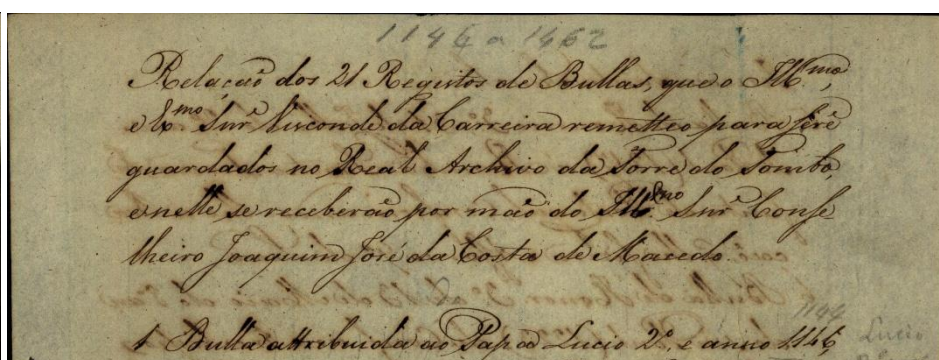 1144 a 1462
Relação dos 21 Registos de Bullas, que o Ill.mo,
e Ex.mo Snr Visconde da Carreira remetteo para serẽ
guardados no Real Archivo da Torre do Tombo,
e nelle se receberão por mão do Ill.mo Snr Conse
lheiro Joaquim José da Costa de Macedo.
1144
1 Bulla attribuida ao Papa Lucio 2º, e anno 1146
Lucio